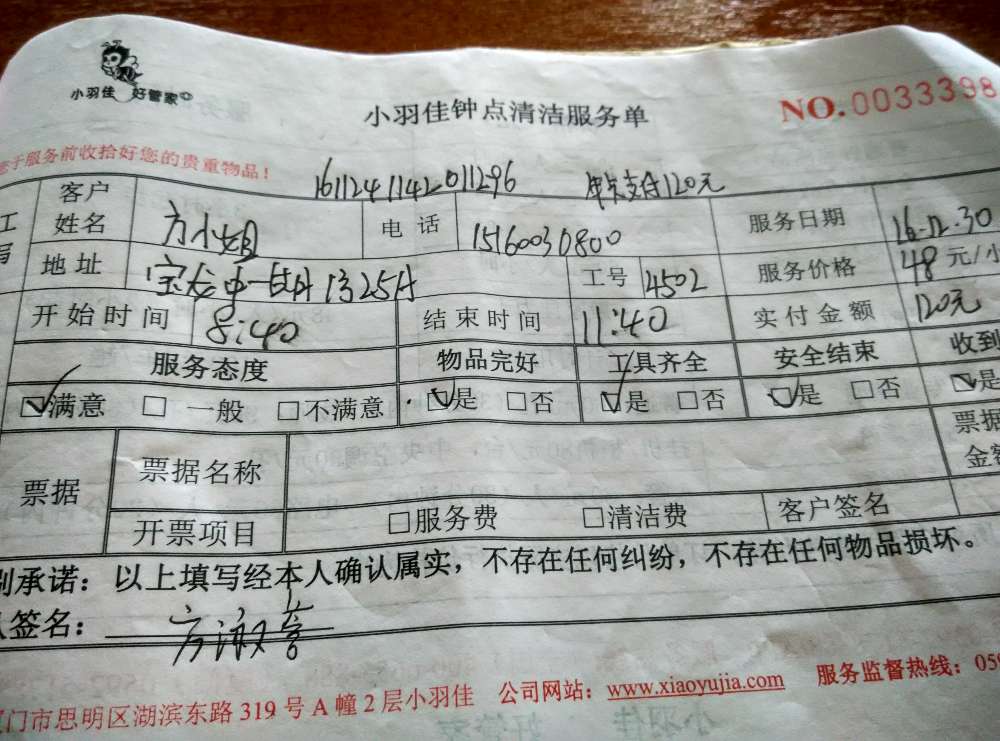 小羽佳 好管家
小羽佳钟点清洁服务单
NO.0033398
于服务前收拾好您的贵重物品!
1611241142011296 支付120元
客户姓名 方小姐 电话 15160030800 服务日期 16.12.30
地址 宝龙中一 1325A 工号 4502 服务价格 48元/小
开始时间 8:40 结束时间 11:40 实付金额 120元
服务态度 物品完好 工具齐全 安全结束 收到
满意 一般 不满意 是 否 是 否 是 否 是
票据 票据名称 票据金额
开票项目 服务费 清洁费 客户签名
别承诺：以上填写经本人确认属实，不存在任何纠纷，不存在任何物品损坏。
签名：方淑
门市思明区湖滨东路 319 号 A 幢 2 层小羽佳 公司网站：www.xiaoyujia.com 服务监督热线：059